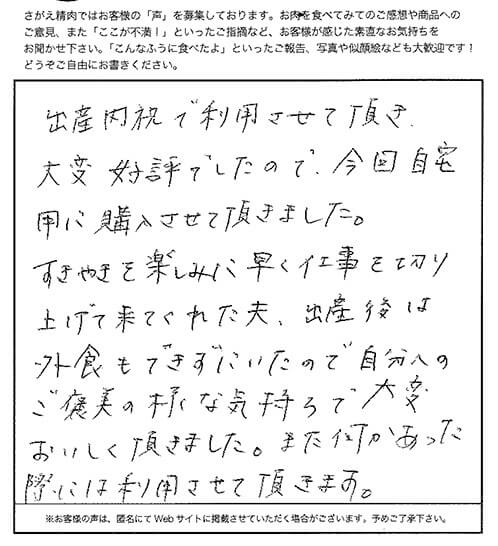 さがえ精肉ではお客様の「声」を募集しております。お肉を食べてみてのご感想や商品への
ご意見、また「ここが不満！」といったご指摘など、お客様が感じた素直なお気持ちを
お聞かせ下さい。「こんなふうに食べたよ」といったご報告、写真や似顔絵なども大歓迎です！
どうぞご自由にお書きください。
出産内祝で利用させて頂き、
大変好評でしたので、今回自宅
用に購入させて頂きました。
すきやきを楽しみに早く仕事を切り
上げて来てくれた夫、出産後は
外食もできずにいたので自分への
ご褒美の様な気持ちで大変
おいしく頂きました。また何かあった
際には利用させて頂きます。
※お客様の声は、匿名にてWebサイトに掲載させていただく場合がございます。予めご了承下さい。